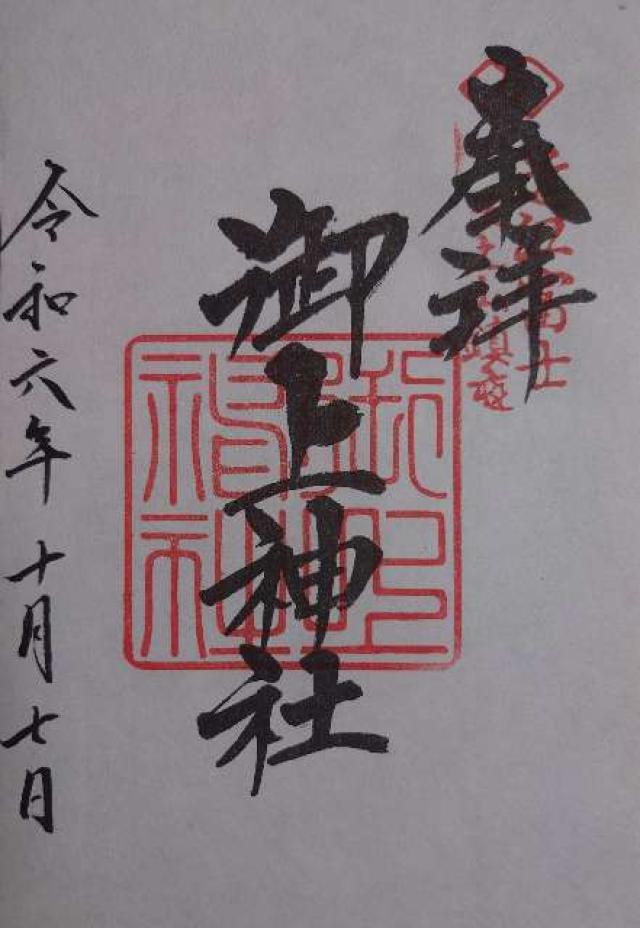 奉拝
御上神社
令和六年十月七日